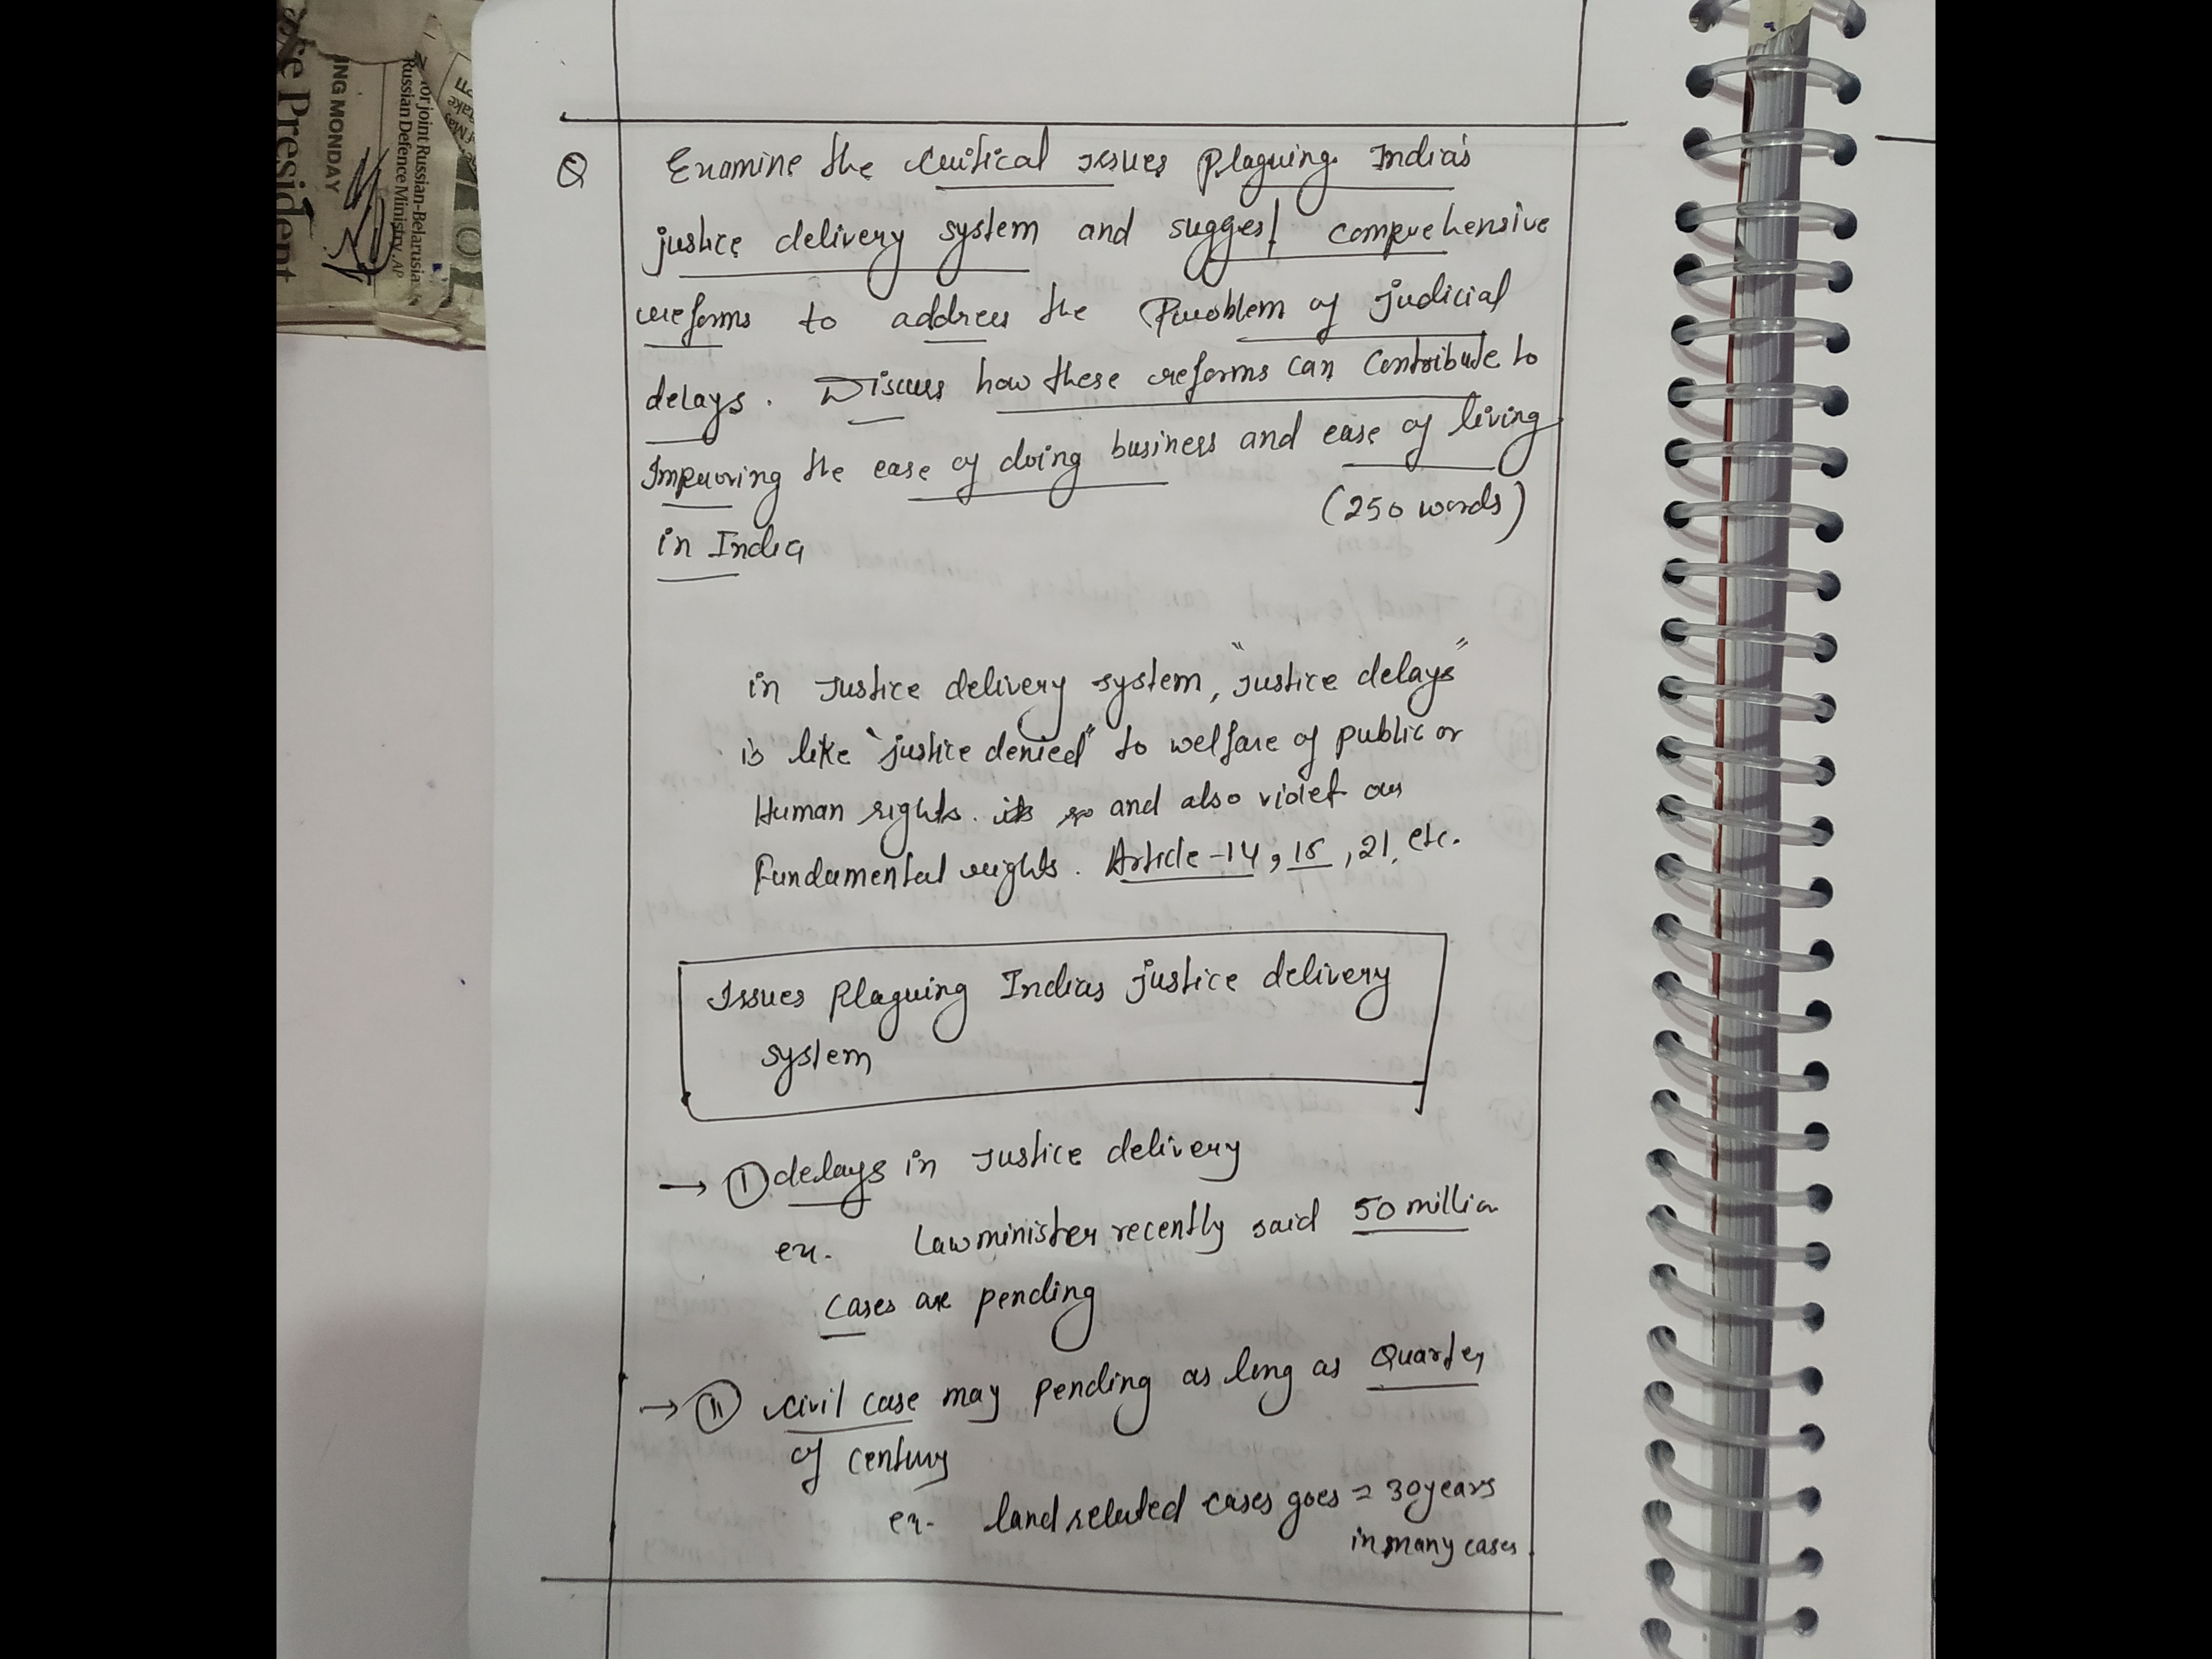 Q Examine the critical issues plaguing India's
justice delivery system and suggest comprehensive
reforms to address the Problem of judicial
delays. Discuss how these reforms can contribute to
Improving the ease of doing business and ease of living
(250 words)
in India
in Justice delivery system, "Justice delays"
is like "justice denied" to welfare of public or
Human rights. and also violet our
Fundamental rights. Article-14, 15, 21, etc.
Issues Plaguing Indias justice delivery
system
→ I delays in Justice delivery
ex. Law minister recently said 50 million
cases are pending
→ II civil case may pending as long as Quarter
of century
ex- land related cases goes = 30 years
in many cases.
ING MONDAY
or joint Russian-Belarusia
Russian Defence Ministry. AP
President